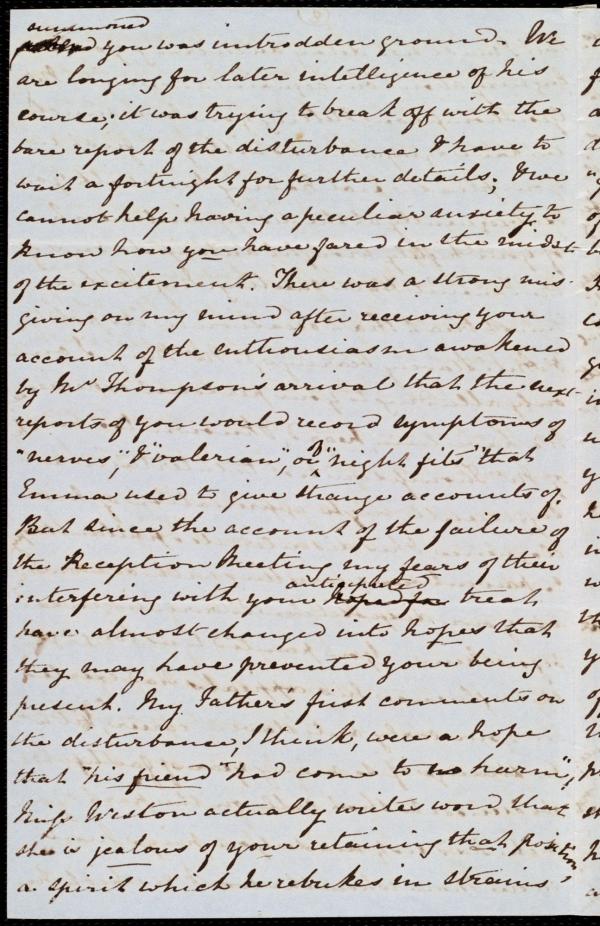 summoned
you was introdden ground. We
are longing for later intelligence of his
course; it was trying to break off with the
bare report of the disturbance & have to
wait a fortnight for further details; & we
cannot help having a peculiar anxiety to
know how you have fared in the midst
of the excitement. There was a strong mis-
giving on my mind after receiving your
account of the enthousiasm awakened
by Mr Thompson's arrival that the next
reports of you would record symptoms of
"nerves", & "valerian", or "night fits" that
Emma used to give strange accounts of.
But since the account of the failure of
the Reception Meeting my fears of their
anticipated
interfering with your hoped for treat
have almost changed into hopes that
they may have prevented your being
present. My Father's first comments on
the disturbance, I think, were a hope
that "his friend" had come to "no harm",
Miss Weston actually writes word that
she is jealous of your retaining that position,
a spirit which he rebukes in strains